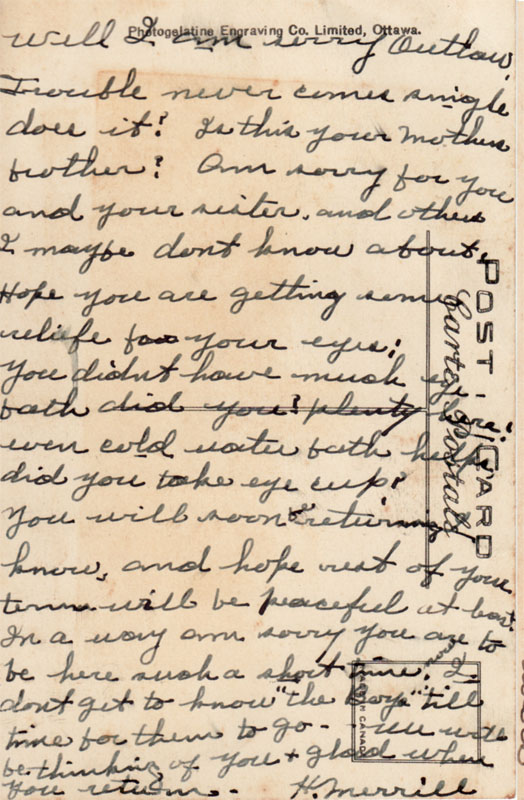 Photogelatine Engraving Co. Limited, Ottawa.
well I am sorry Outlaw,
Trouble never comes single
does it? Is this your Mothers
brother? Am sorry for you
and your sister, and others
I maybe dont know about.
Hope you are getting some
reliefe for your eyes.
You didnt have much eye
bath did you? plenty
even cold water bath helps
did you take eye cup?
You will soon be returning
know, and hope rest of your
term will be peaceful at best.
In a way am sorry you are to
be here such a short time. I
dont get to know "the boys" till
time for them to go -
be thinking of you + glad when
you return - H. Merrill
POST - CARD
Carte Postale